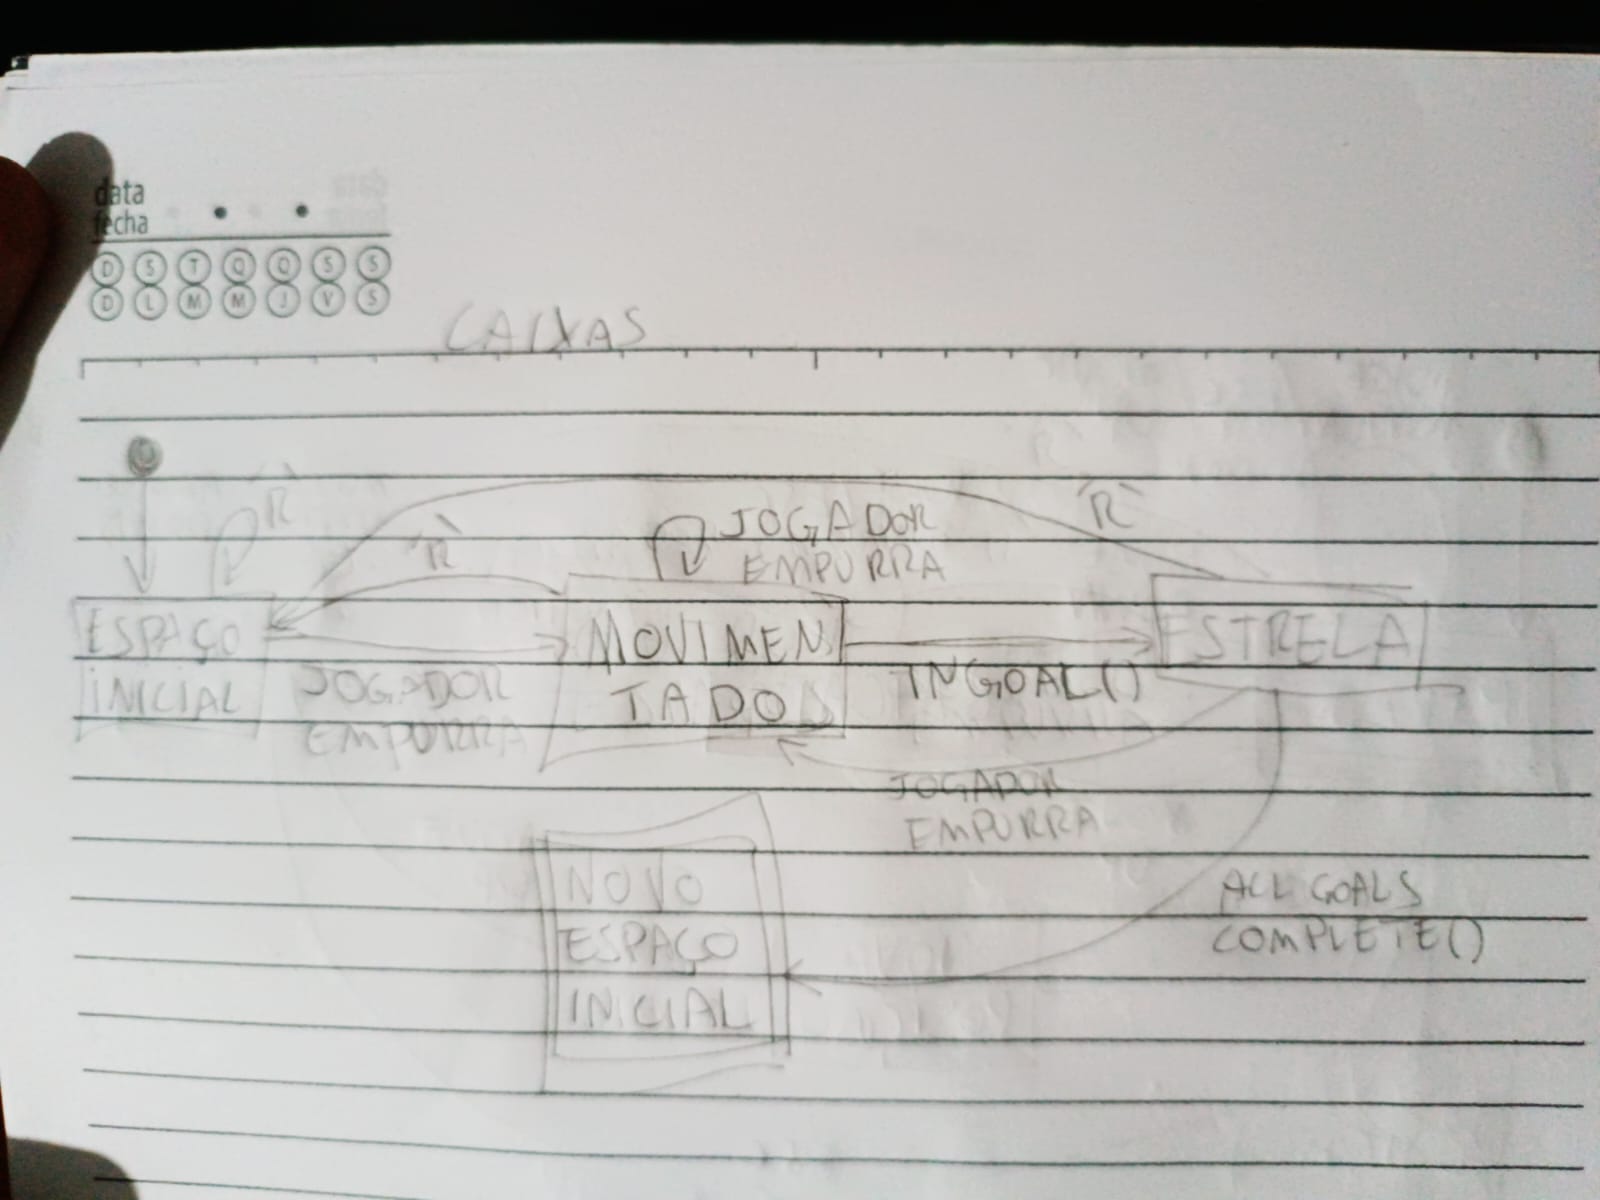 data
fecha
D S T Q Q S S
D L M M J V S
CAIXAS
'R'
'R'
'R'
JOGADOR
EMPURRA
ESPAÇO
INICIAL
JOGADOR
EMPURRA
MOVIMEN
TADO
INGOAL()
ESTRELA
JOGADOR
EMPURRA
NOVO
ESPAÇO
INICIAL
ALL GOALS
COMPLETE()